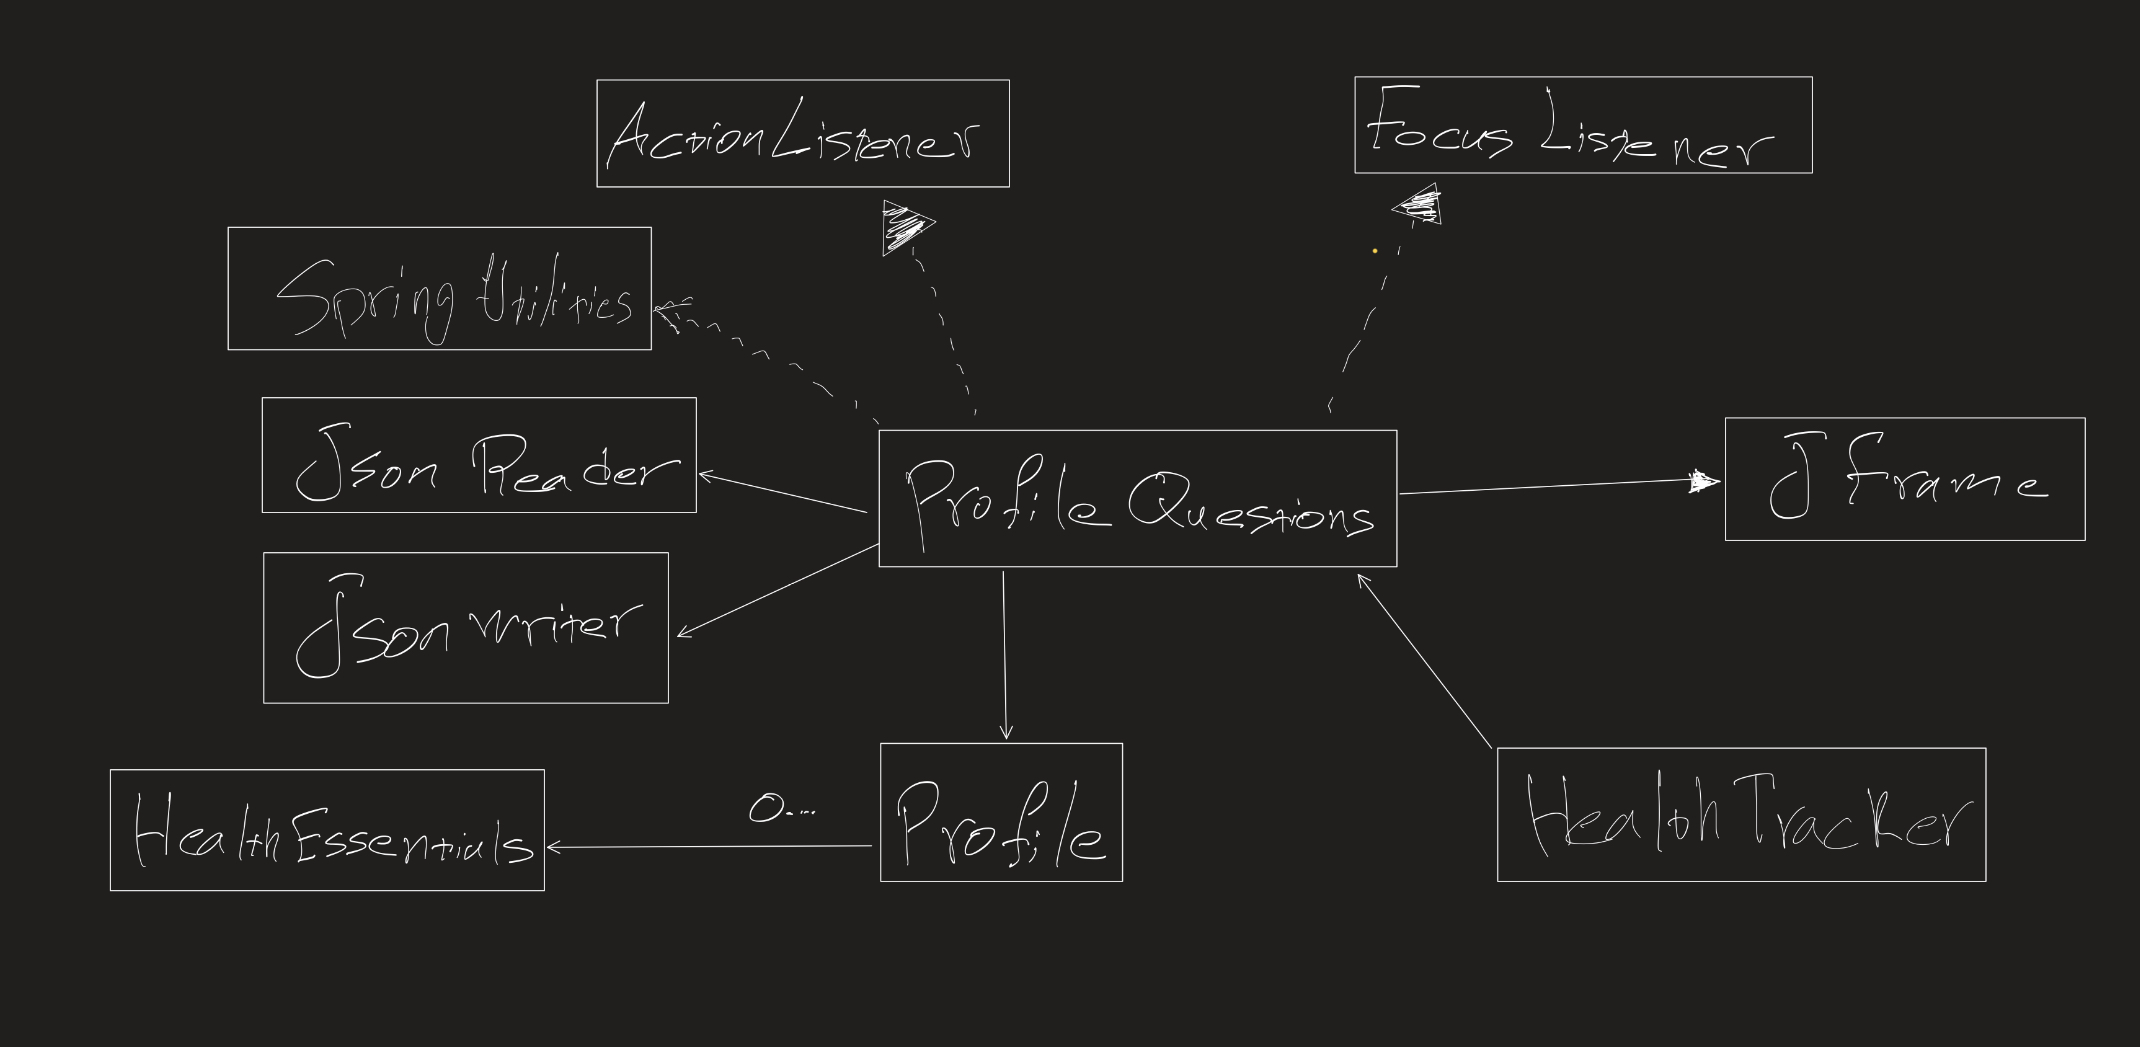 ActionListener
Focus Listener
Spring Utilities
Json Reader
Profile Questions
J Frame
Json writer
0...
Profile
HealthEssentials
HealthTracker